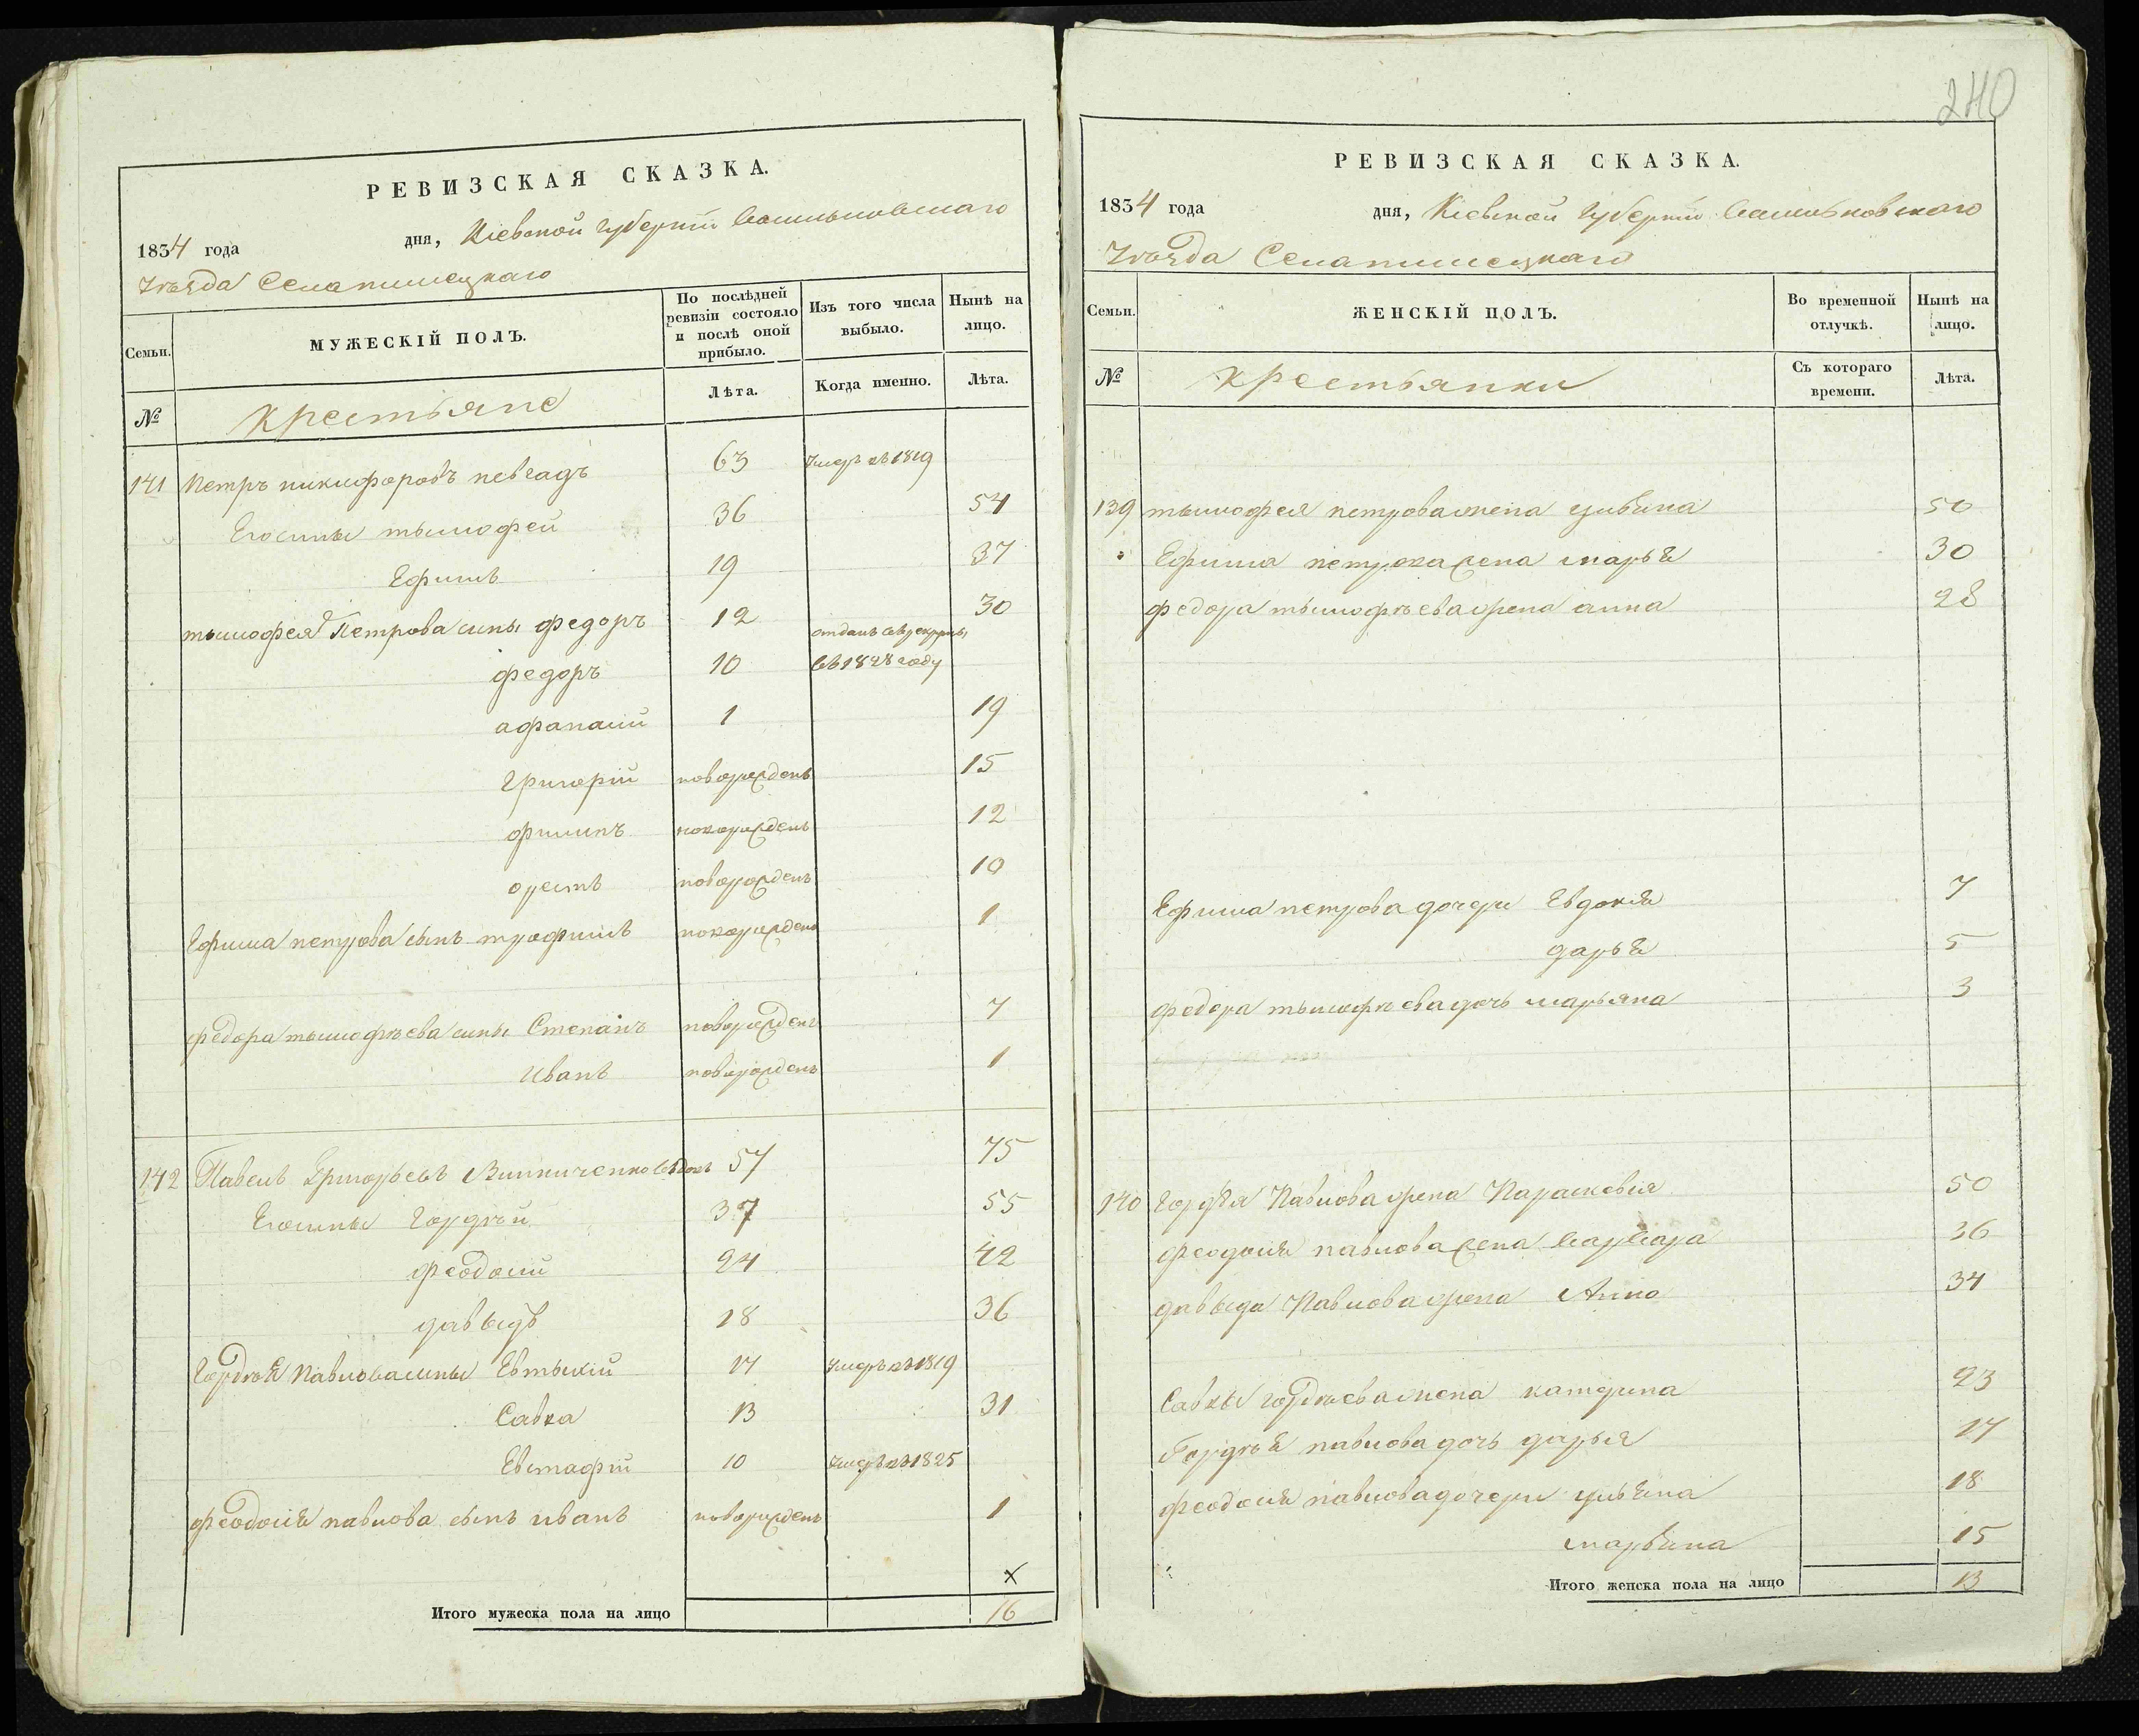 РЕВИЗСКАЯ СКАЗКА.
1834 года дня, Кіевской Губерніи Васильковскаго
уѣзда Села
Семьи. МУЖЕСКІЙ ПОЛЪ. По послѣдней ревизіи состояло и послѣ оной прибыло. Изъ того числа выбыло. Нынѣ на лицо.
№ Крестьяне Лѣта. Когда именно. Лѣта.
141 Петръ никифоровъ 63 умеръ въ 1819
Его сыны тымофей 36 54
Ефимъ 19 37
тымофея Петрова сыны федоръ 12 30
федоръ 10 отданъ въ рекруты въ 1828 году
афанасій 1 19
Григорій новорожденъ 15
филипъ новорожденъ 12
орестъ новорожденъ 10
Ефима петрова сынъ трофимъ новорожденъ 1
федора тымофѣева сыны Степанъ новорожденъ 7
иванъ новорожденъ 1
142 Павелъ Григорьевъ Винниченко вдовъ 57 75
Его сыны Гордѣй 37 55
феодосий 24 42
давыдъ 18 36
Гордѣя Павлова сыны Евтыхій 17 умеръ въ 1819
Савка 13 31
Евстафій 10 умеръ въ 1825
феодосия павлова сынъ иванъ новорожденъ 1
х
Итого мужеска пола на лицо 16
240
РЕВИЗСКАЯ СКАЗКА.
1834 года дня, Кіевской Губерніи Васильковскаго
уѣзда Села
Семьи. ЖЕНСКІЙ ПОЛЪ. Во временной отлучкѣ. Нынѣ на лицо.
№ Крестьянки Съ котораго времени. Лѣта.
139 тымофея петрова жена ульяна 50
Ефима петрова жена марья 30
федора тымофѣева жена анна 28
Ефима петрова дочери Евдокия 7
дарья 5
федора тымофѣева дочь марьяна 3
140 Гордѣя Павлова жена Параскевия 50
феодосия павлова жена варвара 36
давыда Павлова жена Анна 34
Савки гордѣева жена катерина 23
Гордѣя павлова дочь дарья 17
феодосия павлова дочери ульяна 18
марьяна 15
Итого женска пола на лицо 13